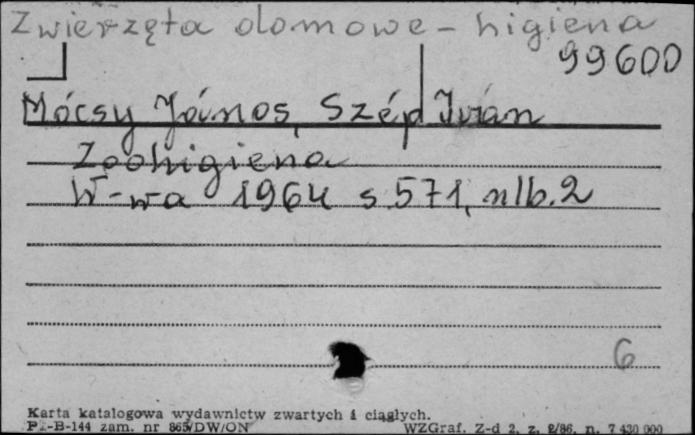 Zwierzęta domowe - higiena
99600
Mócsy János, Szép Iván
Zoohigiena
W-wa 1964 s. 571, nlb. 2
6
Karta katalogowa wydawnictw zwartych i ciągłych.
Pu-B-144 zam. nr 865/DW/ON WZGraf. Z-d 2, z. 2/86, n. 7 430 000